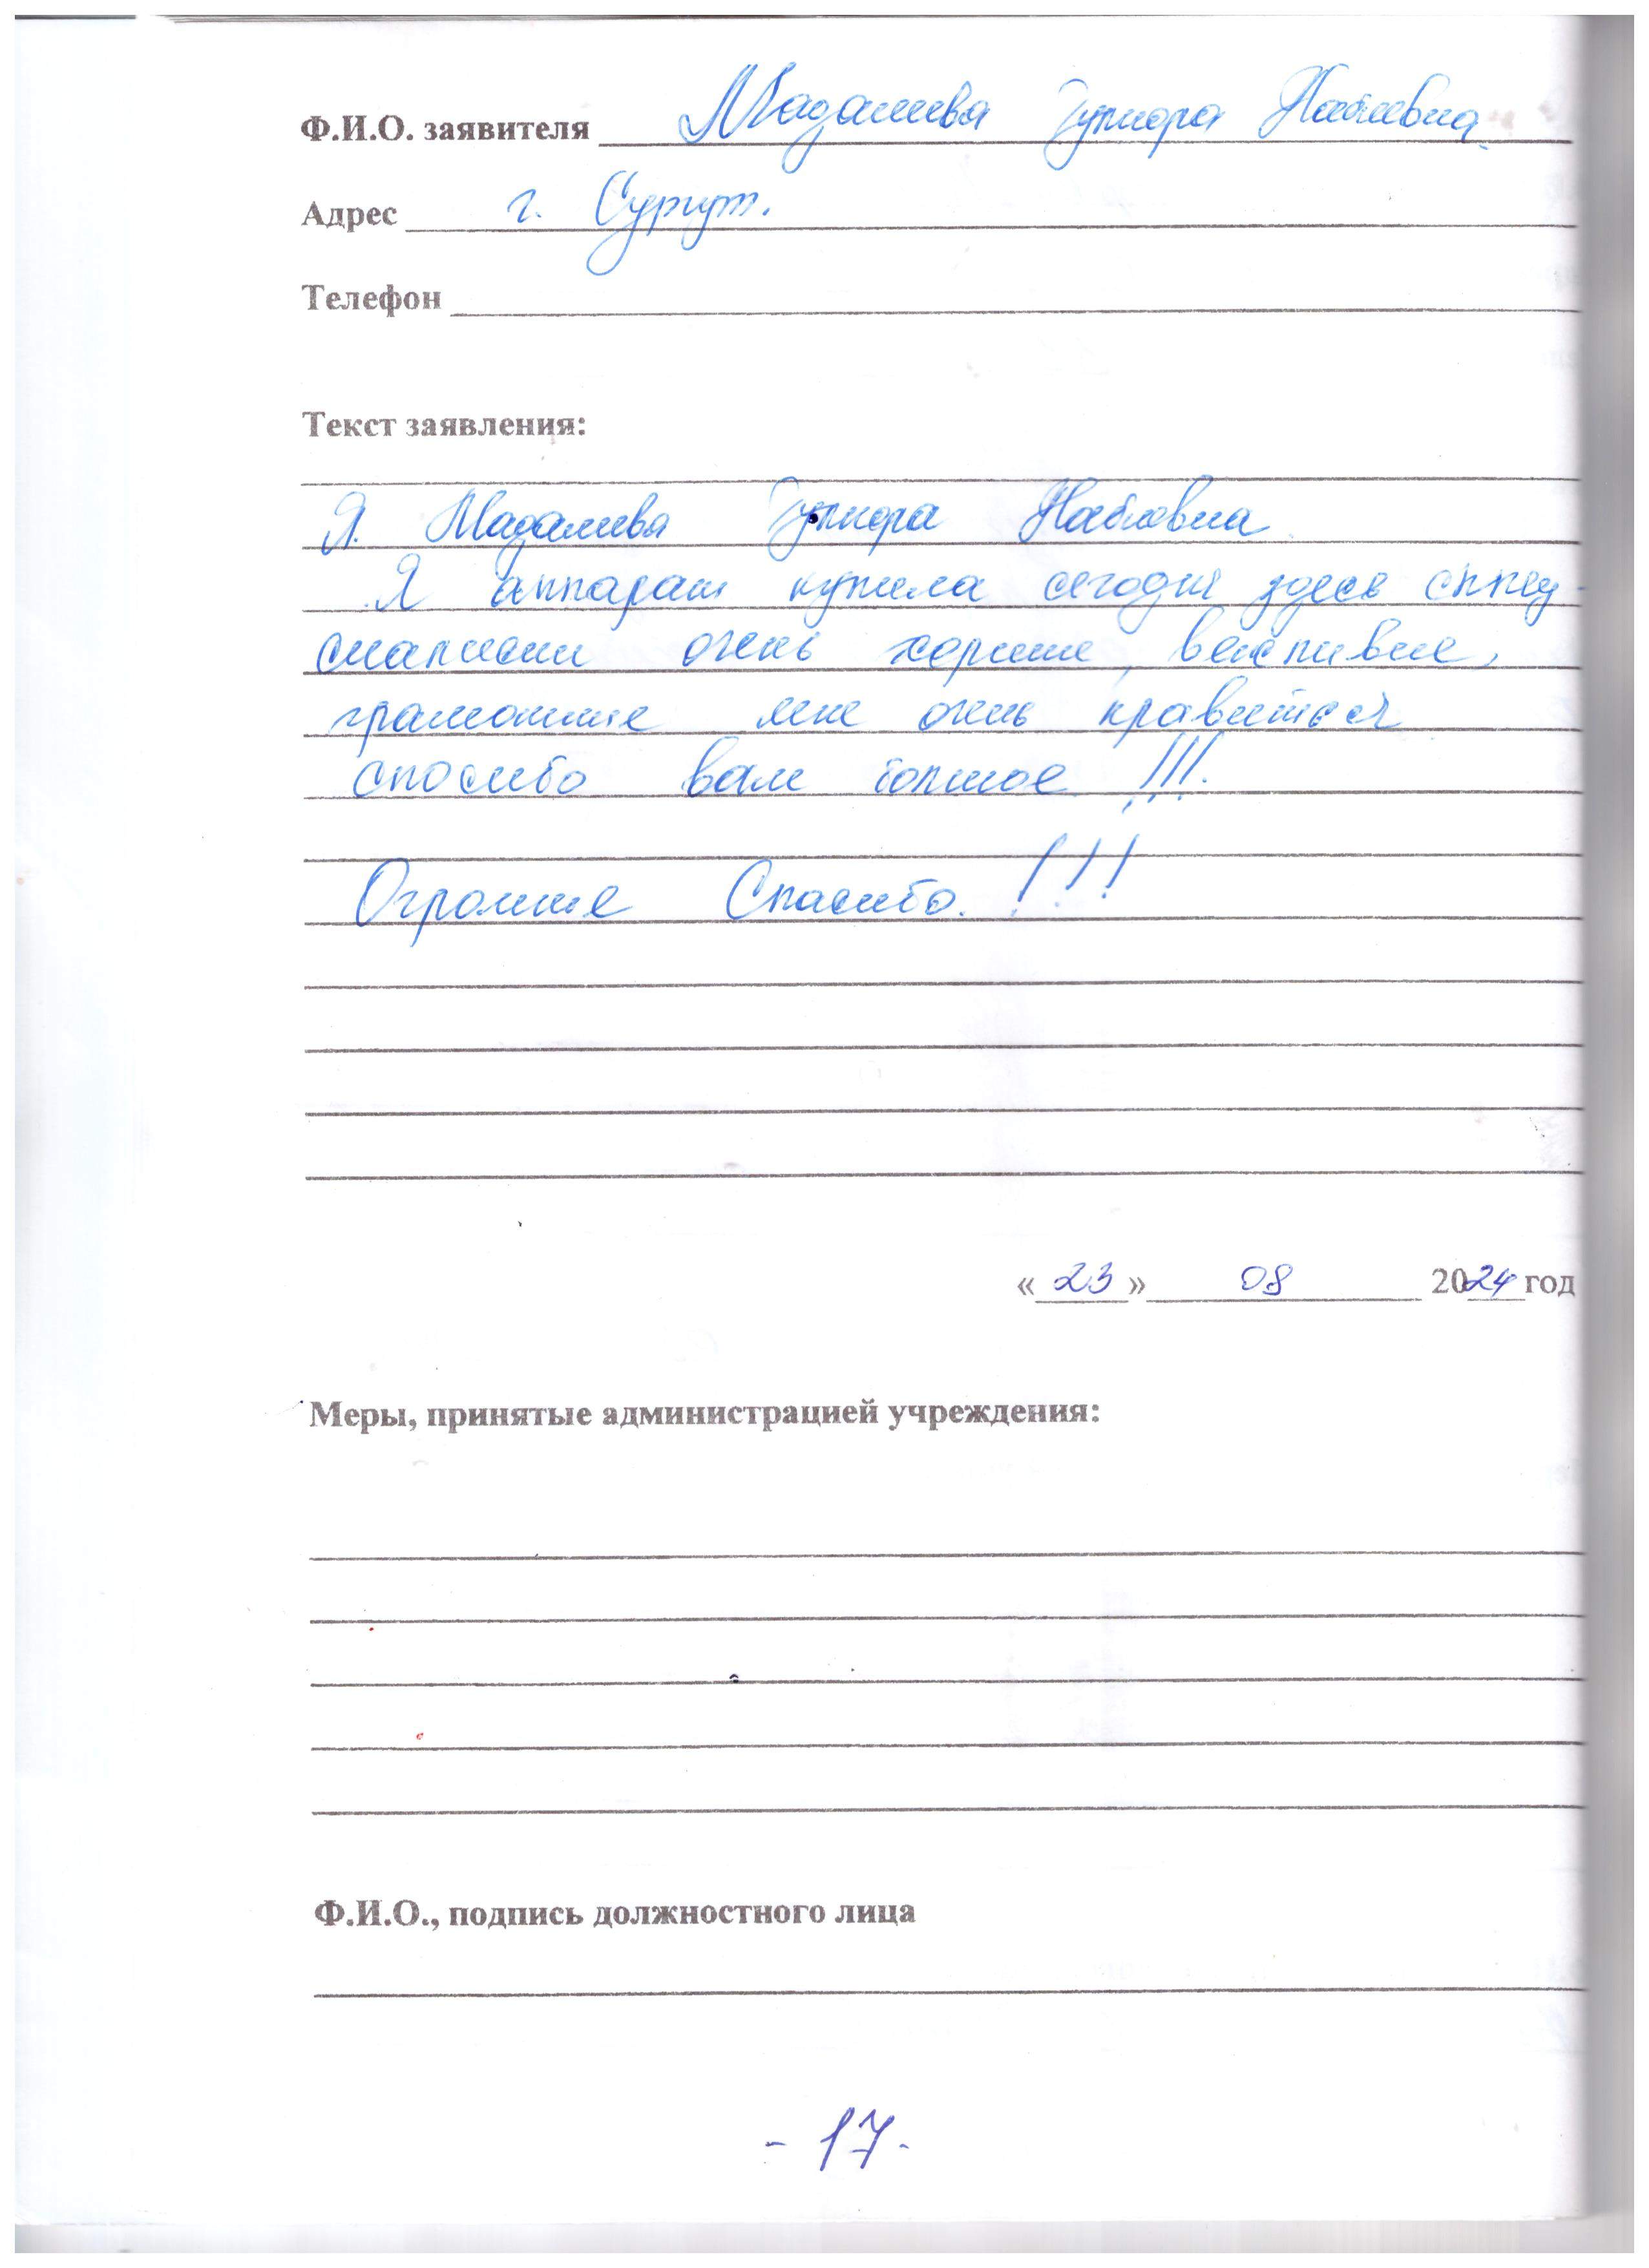 Ф.И.О. заявителя Мадалиева Гулнора Набиевна
Адрес г. Сургут.
Телефон
Текст заявления:
Я. Мадалиева Гулнора Набиевна
Я аппарат купила сегодня здесь
очень хорошие, вежливые,
грамотные мне очень нравится
спосибо вам болшое !!!
Огромные Спасибо. !!!
« 23 » 08 2024 год
Меры, принятые администрацией учреждения:
Ф.И.О., подпись должностного лица
- 17 -